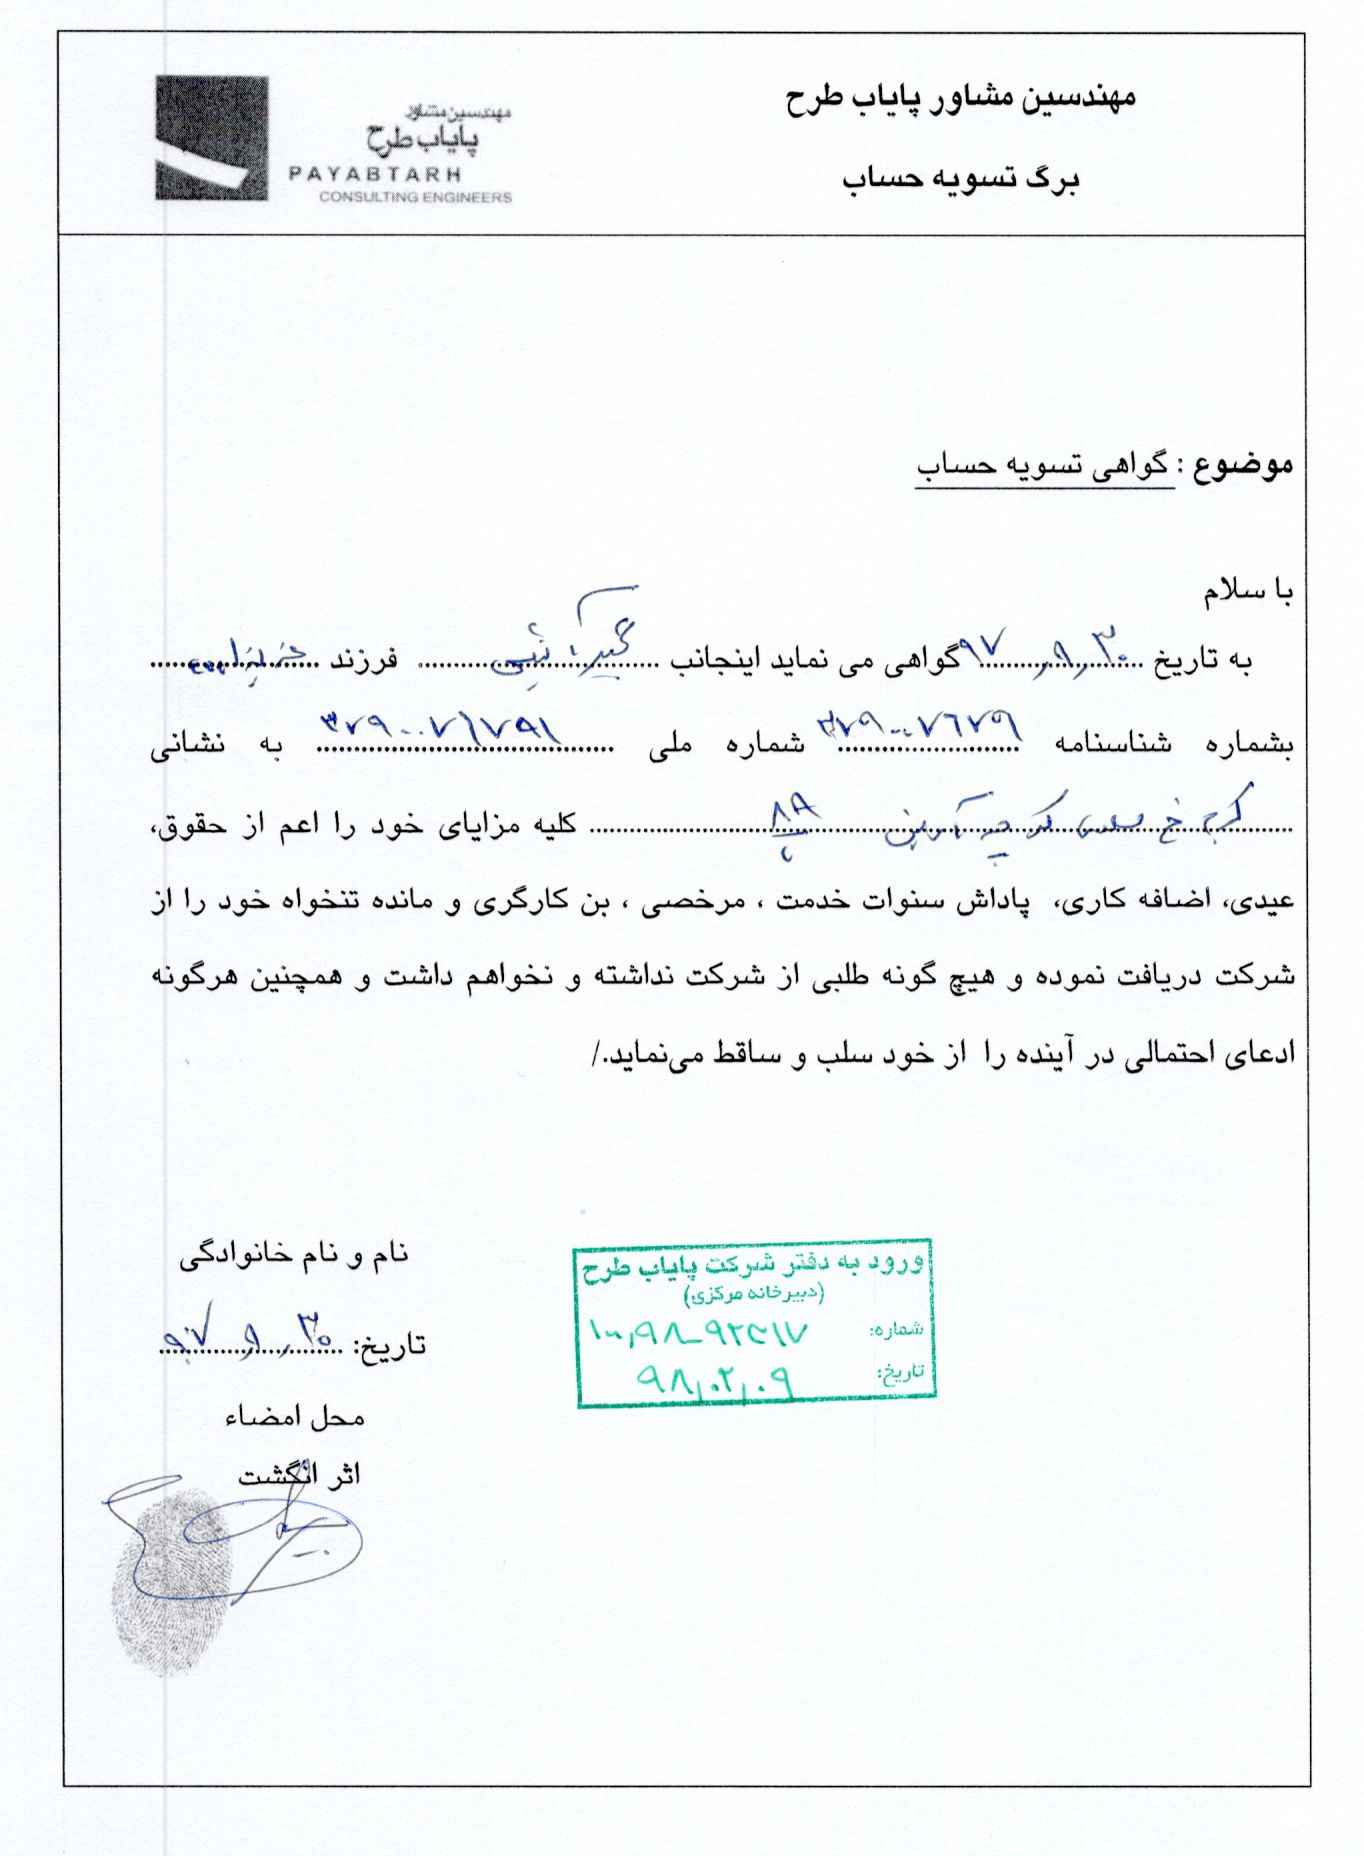 مهندسین مشاور پایاب طرح
برگ تسویه حساب
مهندسین مشاور
پایاب طرح
PAYABTARH
CONSULTING ENGINEERS
موضوع : گواهی تسویه حساب
با سلام
به تاریخ ۹۷,۸,۳۰ گواهی می نماید اینجانب فرزند
بشماره شناسنامه شماره ملی ۳۷۹۰۰۷۶۷۹۱ به نشانی
کرج خ کوچه ۸۸ کلیه مزایای خود را اعم از حقوق،
عیدی، اضافه کاری، پاداش سنوات خدمت ، مرخصی ، بن کارگری و مانده تنخواه خود را از
شرکت دریافت نموده و هیچ گونه طلبی از شرکت نداشته و نخواهم داشت و همچنین هرگونه
ادعای احتمالی در آینده را از خود سلب و ساقط می‌نماید./
نام و نام خانوادگی
تاریخ: ۹۷,۸,۳۰
محل امضاء
اثر انگشت
ورود به دفتر شرکت پایاب طرح
(دبیرخانه مرکزی)
شماره:
تاریخ: ۹۸,۰۲,۰۹